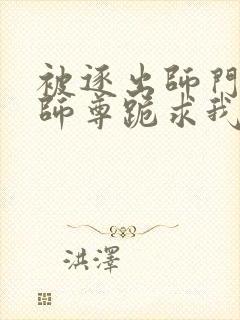 被逐出師門
師尊跪求我
洪澤